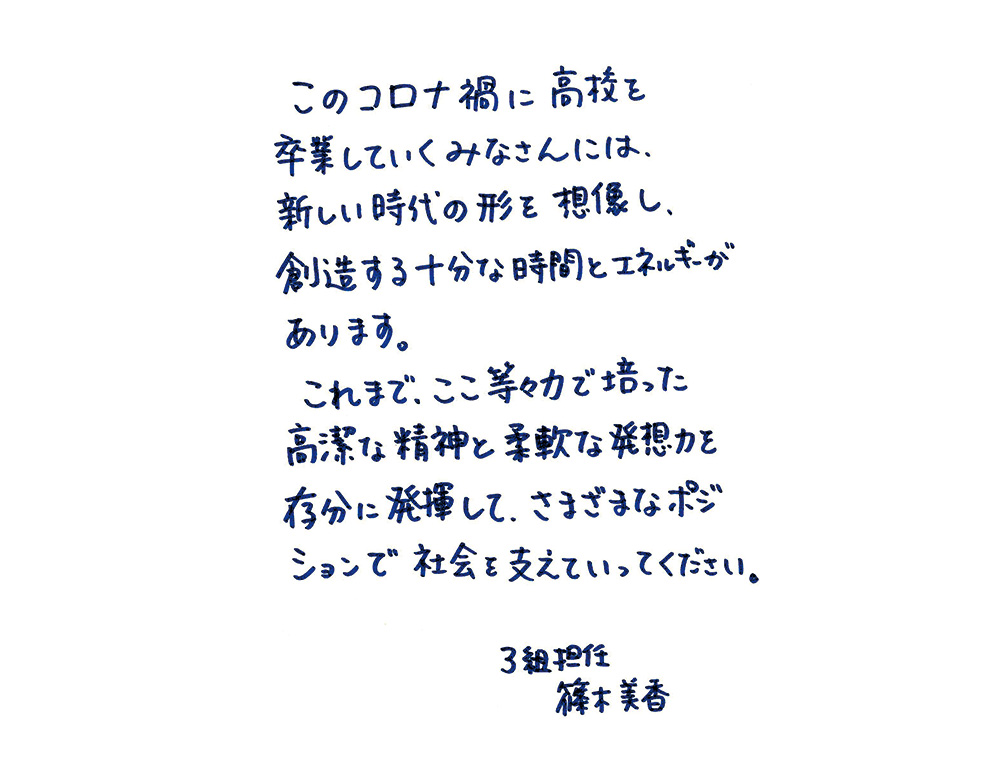 このコロナ禍に高校を
卒業していくみなさんには、
新しい時代の形を想像し、
創造する十分な時間とエネルギーが
あります。
これまで、ここ等々力で培った
高潔な精神と柔軟な発想力を
存分に発揮して、さまざまなポジ
ションで社会を支えていってください。
3組担任
篠木美香